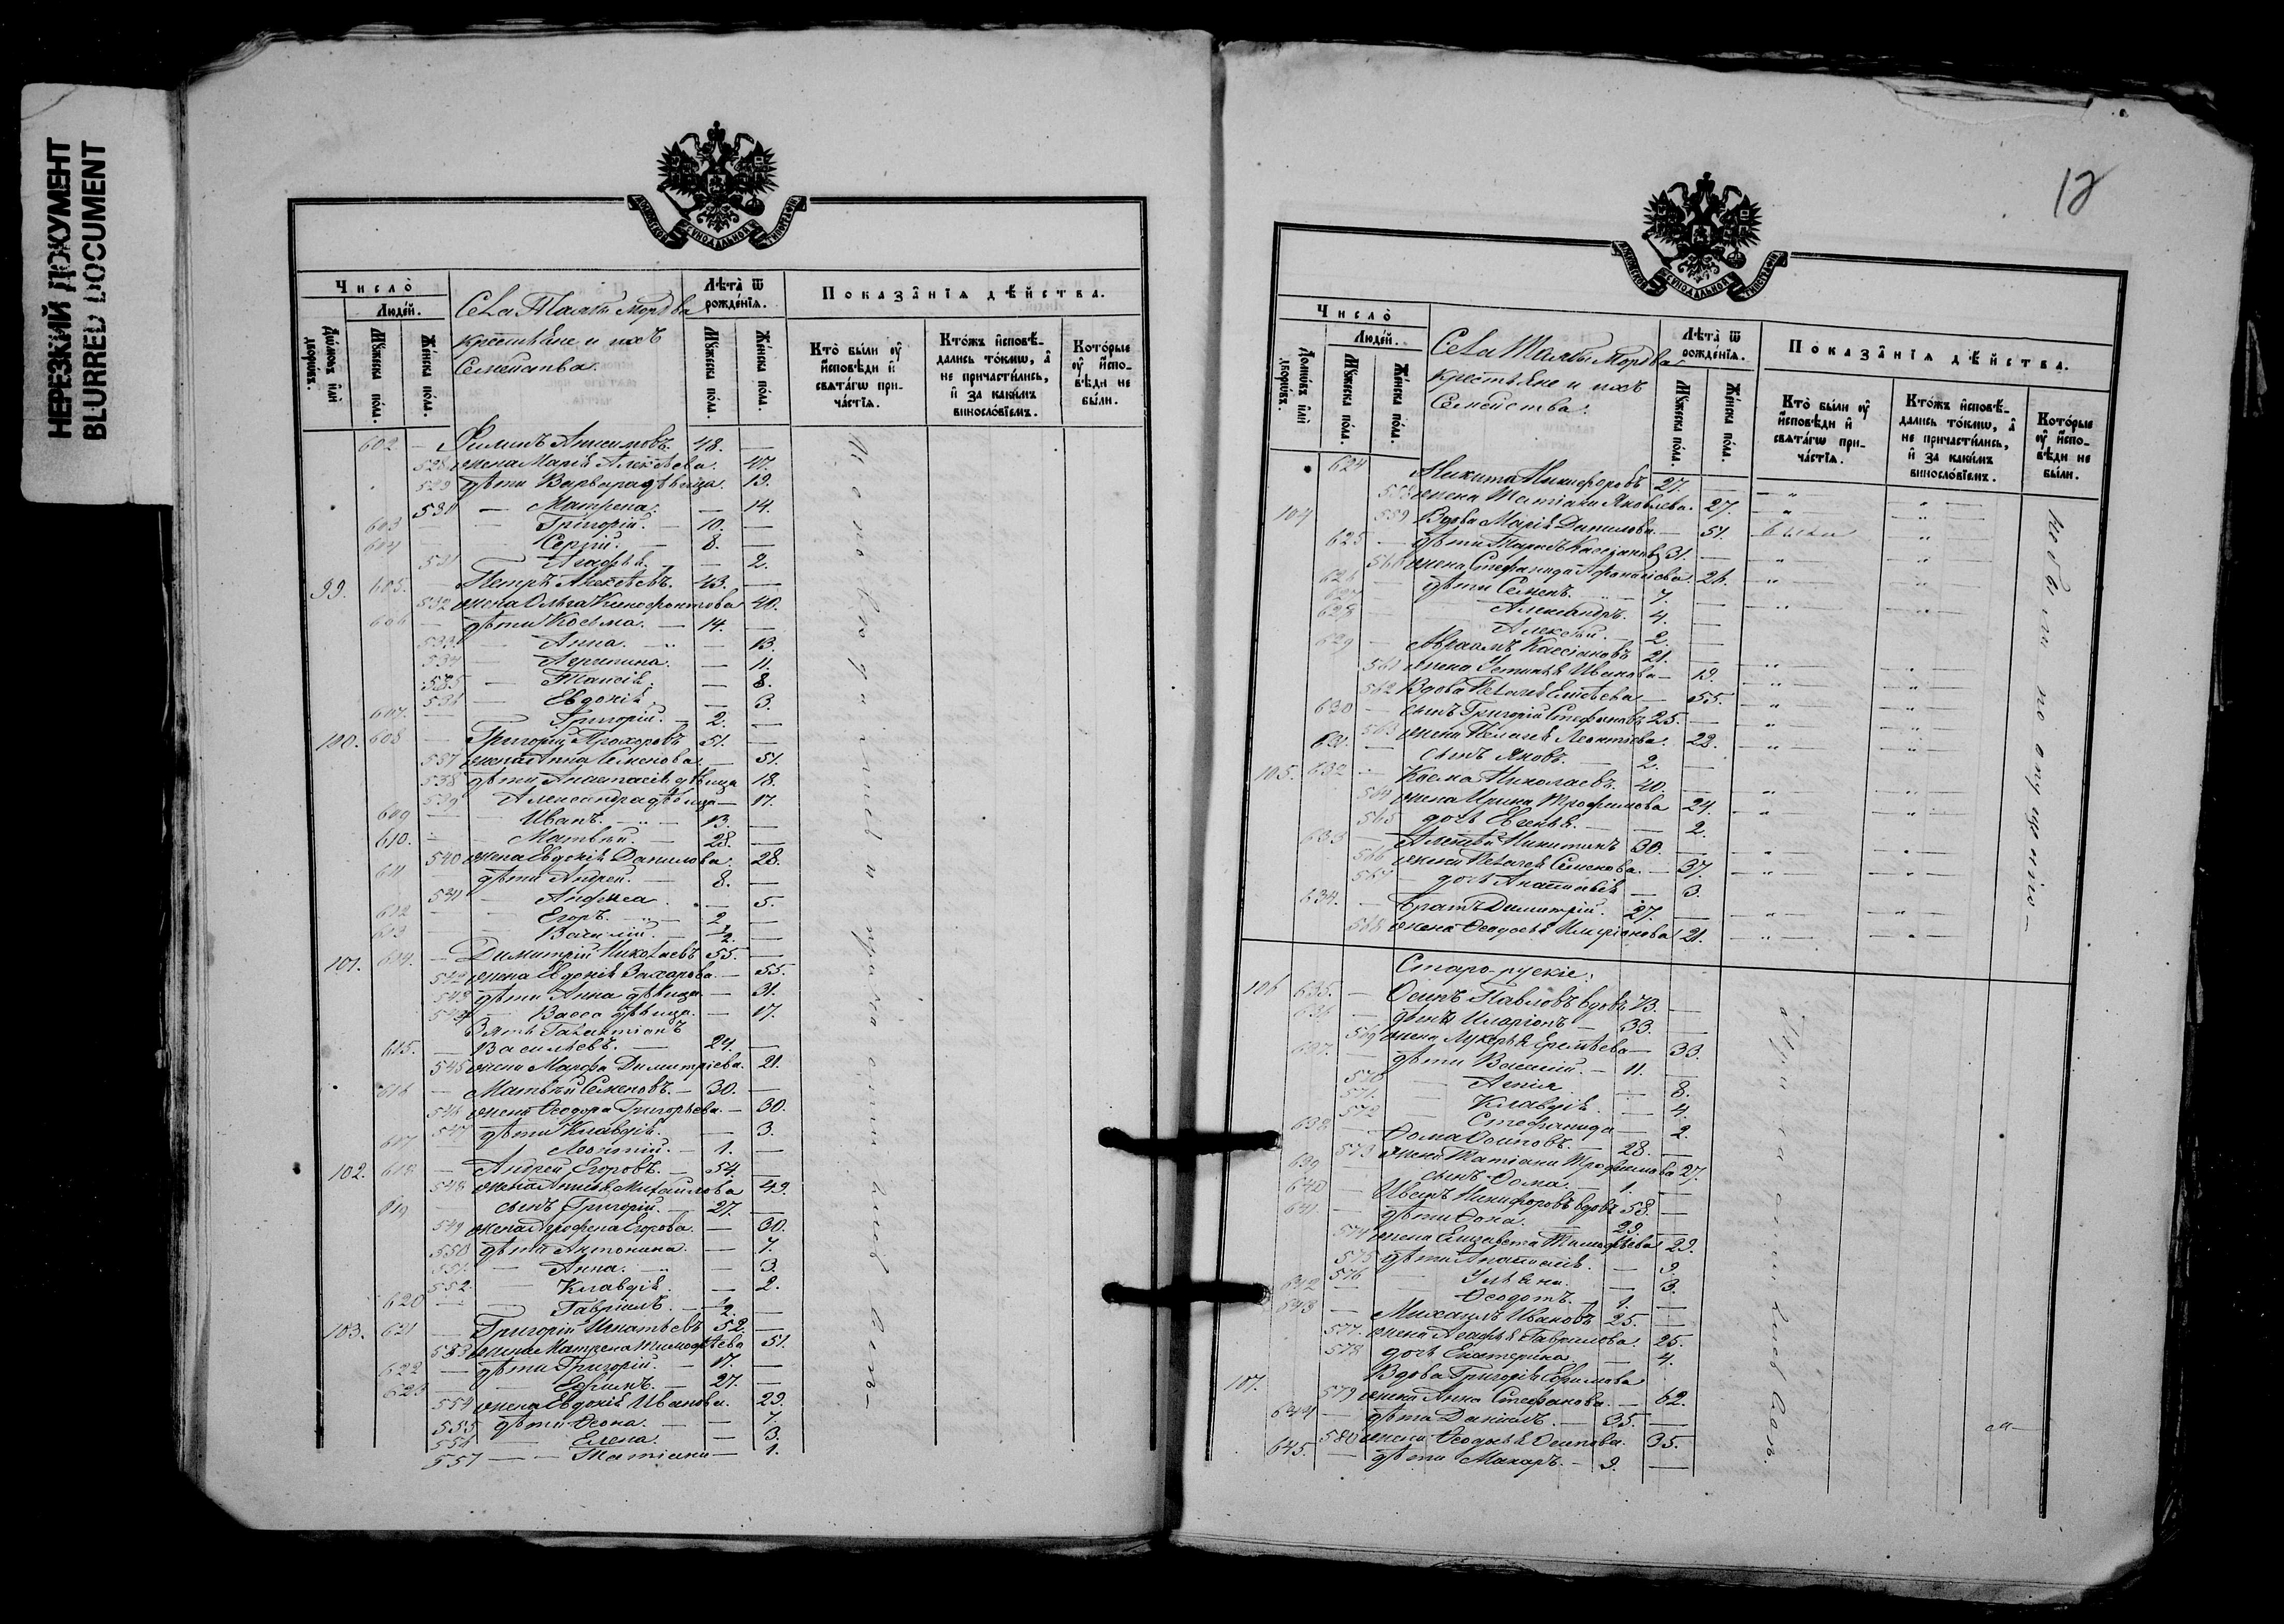 НЕРЕЗКИЙ ДОКУМЕНТ
BLURRED DOCUMENT
МОСКОВСКОЙ СѴНОДАЛЬНОЙ ТИПОГРАФІИ
Число̀
Людей.
Домѡвъ и҆лѝ дворѡвъ.
Мꙋжеска пола.
Женска пола.
Села Талы Мордва
крестьяне и ихъ
Семейства.
Лѣта̀ ѿ рожденїѧ.
Мꙋжеска пола.
Женска пола.
Показанїѧ дѣйства.
Кто̀ были ᲂу҆ и҆сповѣди и҆ свѧтагѡ причастїѧ.
Ктожъ и҆сповѣдались токмѡ, а҆ не причастились, и҆ за какимъ винословїемъ.
Которые ᲂу҆ и҆споВѣди не были.
602 — Филипъ 48. —
528 жена Марія Алексѣева. 47.
529 дѣти Варвара дѣвица. 19.
530 — Матрена. — 14.
603 — Григорій. — 10. —
604 — Сергій. — 8. —
531 — Агафья. — 2.
99. 605. — Петръ Алексѣевъ. 43. —
532 жена Ольга Ксенофонтова 40.
606 — дѣти Косьма. — 14. —
533 — Анна. — 13.
534 — Агрипина. — 11.
535 — Таисія. — 8.
536 — Евдокія. — 3.
607. — Григорій. — 2. —
100. 608 — Григорій Прохоровъ 51. —
537 жена Анна Семенова. — 51.
538 дѣти Анастасія дѣвица 18.
539 Александра дѣвица — 17.
609 — Иванъ. — 13. —
610. — Матвѣй. — 28. —
540 жена Евдокія Данилова. 28.
611 дѣти Андрей. — 8. —
541 — Анфиса. — 5.
612 — Егоръ. — 2. —
613 — Василій. — ½. —
101. 614. — Димитрій Николаевъ 55. —
542 жена Евдокія Захарова. — 55.
543 дѣти Анна дѣвица. — 31.
544 — Васса дѣвица. — 17.
Зять Галактіонъ
615. — Васильевъ. — 24. —
545 жена Марфа Димитріева. 21.
616 — Матвѣй Семеновъ. — 30. —
546 жена Ѳеодора Григорьева. — 30.
547 дѣти Клавдія. — 3.
617 — Леонтій. — 1. —
102. 618. — Андрей Егоровъ. — 54. —
548 жена Михайлова 49.
619 сынъ Григорій. — 27. —
549 жена Агрофена Егорова. — 30.
550 дѣти Антонина. — 7.
551. — Анна. — 3.
552. — Клавдія. — 2.
620 — Гавріилъ. — ½. —
103. 621 — Григорій Игнатьевъ 52. —
553 жена Матрена Тимофѣева 51.
622 — дѣти Григорій. — 17. —
623 — Ефимъ. — 27. —
554 жена Евдокія Иванова. 29.
555 дѣти Ѳеона. — 7.
556 — Елена. — 3.
557 — Татіана — 1.
12
МОСКОВСКОЙ СѴНОДАЛЬНОЙ ТИПОГРАФІИ
Число̀
Людей.
Домѡвъ и҆лѝ дворѡвъ.
Мꙋжеска пола.
Женска пола.
Села Талы Мордва
крестьяне и ихъ
Семейства.
Лѣта̀ ѿ рожденїѧ.
Мꙋжеска пола.
Женска пола.
Показанїѧ дѣйства.
Кто̀ были ᲂу҆ и҆сповѣди и҆ свѧтагѡ причастїѧ.
Ктожъ и҆сповѣдались токмѡ, а҆ не причастились, и҆ за какимъ винословїемъ.
Которые ᲂу҆ и҆споВѣди не были.
624 Никита Никифоровъ 27. —
558 жена Татіана Яковлева. 27.
104 559 Вдова Марія Данилова. — 51. была
625 — дѣти Тарасъ Кассіановъ 31. —
560 жена Стефанида Афанасіева. 26.
626 — дѣти Семенъ. 7. —
627 Александръ. 4. —
628 Алексѣй. 2. —
629 — Авраамъ Кассіановъ 21. —
561 жена Устинья Иванова — 19.
562 Вдова Пелагея Елисѣева — 55.
630 — сынъ Григорій Стефановъ 25. —
563 жена Пелагея Леонтіева. 22.
631. — сынъ Яковъ. — 2. —
105. 632 — Косма Николаевъ. 40. —
564 жена Ирина Трофимова 24.
565 дочь Евгенія. — 2.
633 — Алексѣй Никитинъ 30. —
566 жена Пелагея Семенова. — 37.
567 дочь Анастасія — 3.
634. — братъ Димитрій. 27. —
568 жена Ѳеодосія 21.
Не были по опущенію —
Старо-рускіе.
106 635. — Осипъ Павловъ вдовъ 73. —
636 — дѣти Иларіонъ — 33. —
569 жена Лукерья Еремѣева — 33.
637. — дѣти Василій. — 11. —
570 — — 8.
571. — Клавдія. — 4.
572 — Стефанида — 2.
638. — Ѳома Осиповъ. — 28. —
573 жена Татіана Трофимова 27.
639 — сынъ Ѳома. — 1. —
640 — Иванъ Никифоровъ вдовъ 58. —
641. — дѣти Ѳока. 29. —
574 жена Елизавета Тимофѣева 29.
575 дѣти Анастасія. — 9.
576 — Ульяна. — 3.
642 — Ѳеодотъ. 1. —
643 — Михаилъ Ивановъ 25. —
577. жена Агафья Гаврилова. 25.
578 дочь Екатерина — 4.
107. Вдова Григорія Ефимова
579 жена Анна Стефанова. — 62.
644 — дѣти Даніилъ. — 35. —
580 жена Ѳеодосья Осипова. 35.
645. — дѣти Макаръ. — 9. —